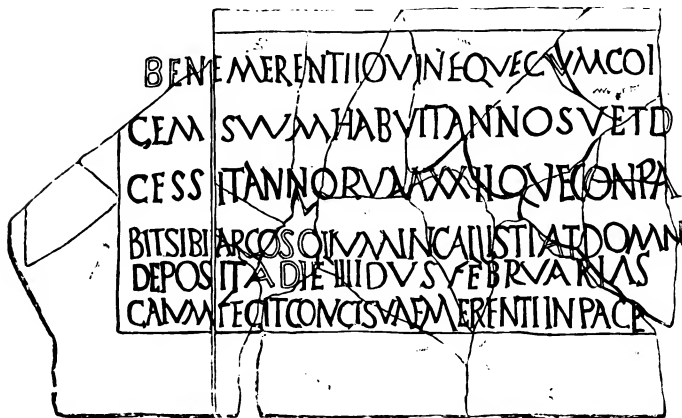 BENEMERENTIIOVINEQVECVMCOI
CEMSVVMHABVITANNOSVETD
CESSITANNORVMXXIIQVECONPA
BITSIBIARCOSOLIVMINCALLISTIATDOMN
DEPOSITADIEIIIIDVSFEBRVARIAS
CAIVMFECITCONCISVAEMERENTIINPACE